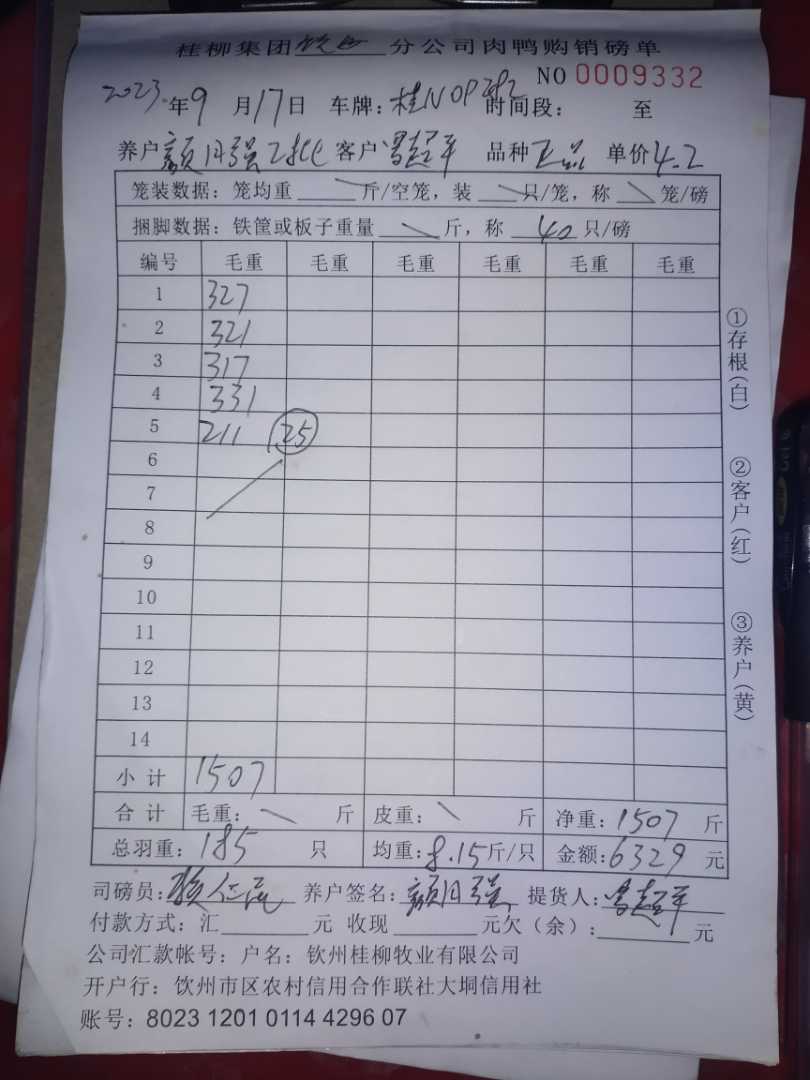 桂柳集团 钦州 分公司肉鸭购销磅单
NO 0009332
2023年9月17日 车牌：桂N 时间段： 至
养户 颜月强2批 客户 曾超平 品种 正品 单价4.2
笼装数据：笼均重 斤/空笼，装 只/笼，称 笼/磅
捆脚数据：铁筐或板子重量 斤，称 40 只/磅
编号 毛重 毛重 毛重 毛重 毛重 毛重
1 327
2 321
3 317
4 331
5 211 25
6
7
8
9
10
11
12
13
14
小计 1507
合计 毛重： 斤 皮重： 斤 净重：1507 斤
总羽重：185 只 均重：8.15斤/只 金额：6329 元
司磅员： 养户签名：颜月强 提货人：曾超平
付款方式：汇 元 收现 元欠（余）： 元
公司汇款帐号：户名：钦州桂柳牧业有限公司
开户行：钦州市区农村信用合作联社大垌信用社
账号：8023 1201 0114 4296 07
①存根（白）
②客户（红）
③养户（黄）